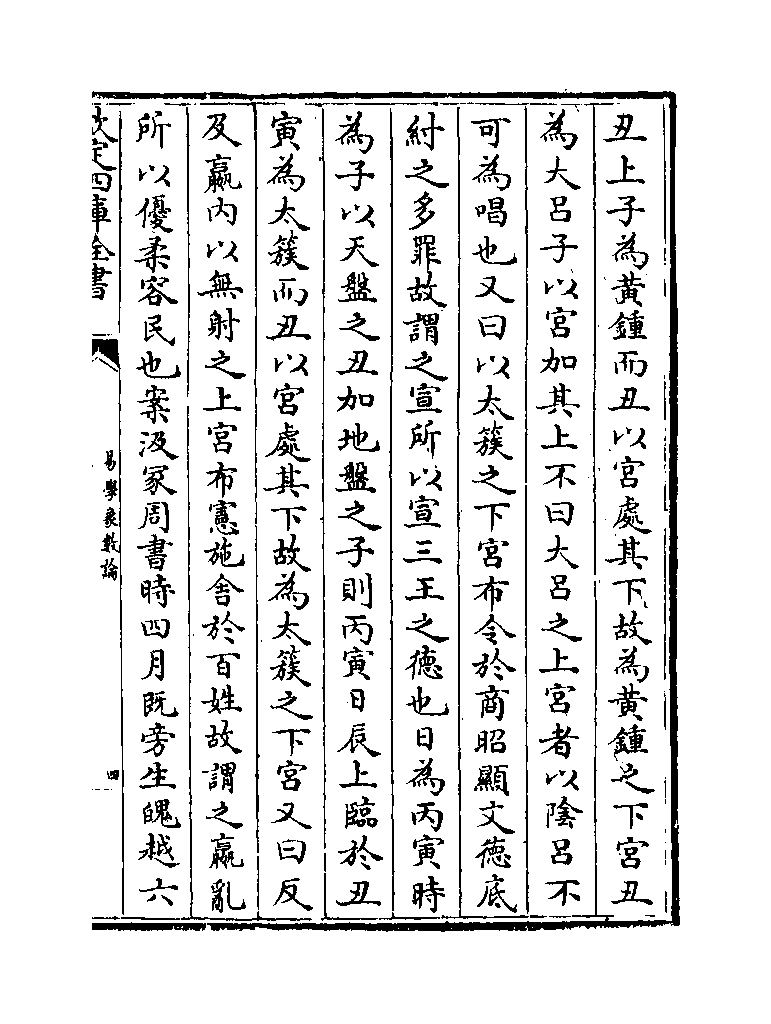 丑上子為黄鍾而丑以宮處其下故為黄鍾之下宮丑
為大呂子以宮加其上不曰大呂之上宮者以陰呂不
可為唱也又曰以太簇之下宮布令於商昭顯文德底
紂之多罪故謂之宣所以宣三王之德也日為丙寅時
為子以天盤之丑加地盤之子則丙寅日辰上臨於丑
寅為太簇而丑以宮處其下故為太簇之下宮又曰反
及嬴内以無射之上宮布憲施舍於百姓故謂之嬴亂
所以優柔容民也案汲冢周書時四月既旁生魄越六
欽定四庫全書
易學象數論
四